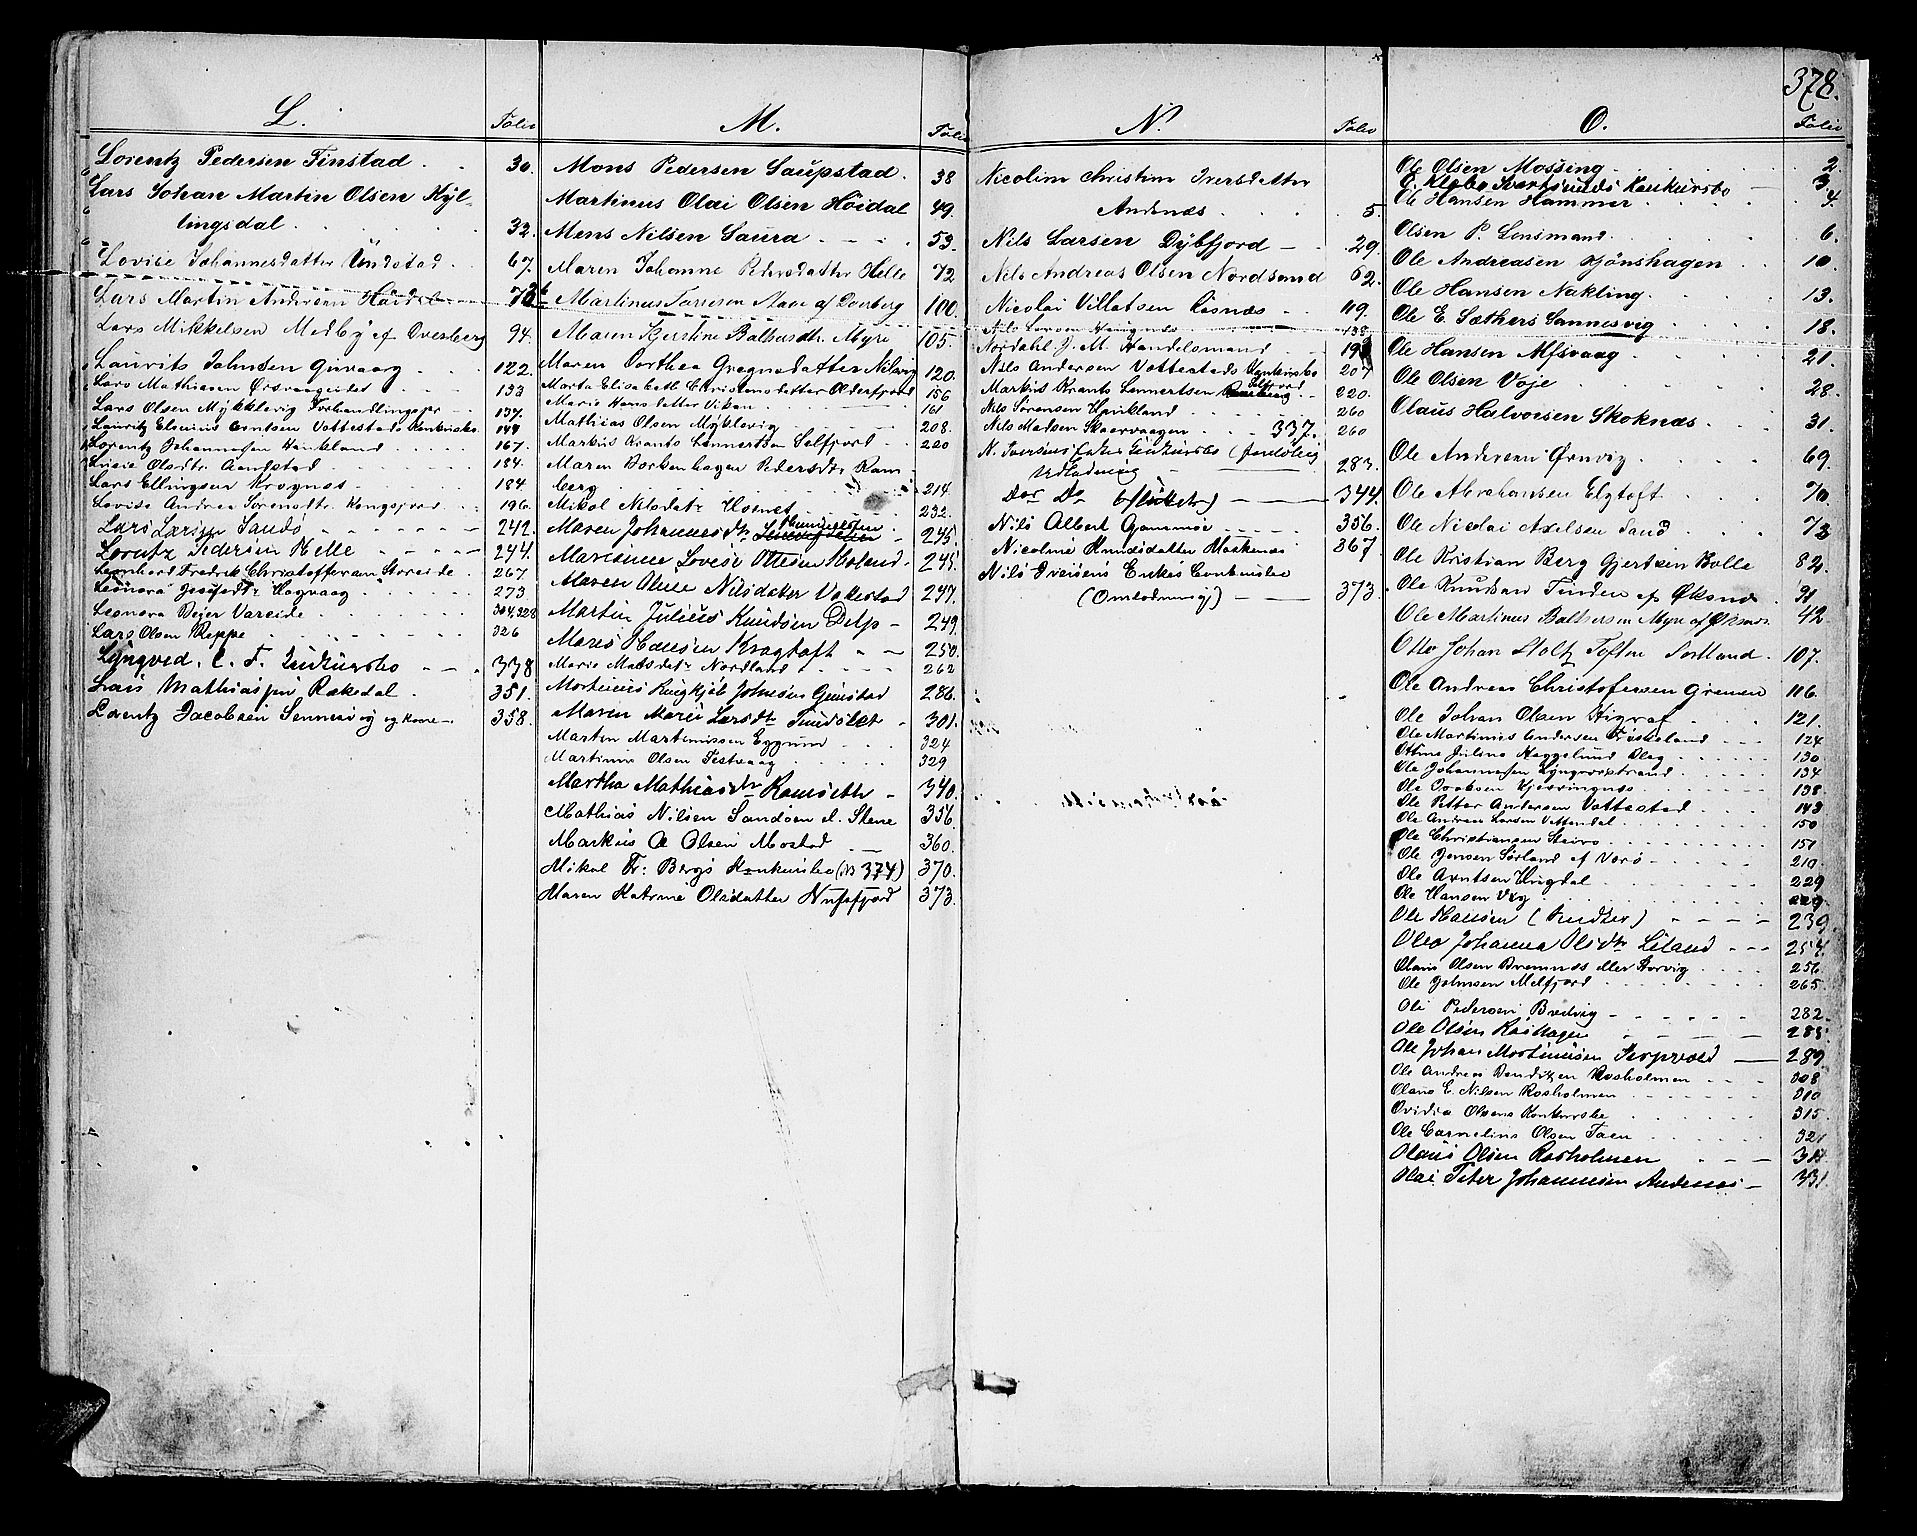 378.
L. Folio
Lorentz Pedersen Finstad . . 30.
Lars Johan Martin Olsen Kyl-
lingsdal . . . . . 32.
Lovise Johannesdatter Undstad . 67.
Lars Martin Andersen Höidal
Lars Mikkelsen Medby af Overberg 94.
Laurits Johnsen Gunaarg . . . 122.
Lars Mathisen Örsvaagvalet . . 133
Lars Olsen Myklevig Forhandlingspr . . 137.
Lauritz Arntsen Vottestads Konkursbo 144
Lorentz Johannesen Haukland . . . 167.
Olsdtr. Sandstad . . . 184.
Lars Ellingsen Kragnes . . . 184
Lovise Andrea Sörensdtr. Kongsjord . . 196.
Lars Larsen Sands - - - 242.
Lorentz Pedersen Helle - - - 244.
Leonhard Fredrik Christoffersen Storeide . 267.
Leonora Josefsdtr Hagvaag . . . 273.
Leonora Dejer Vareide . . . 304,328
Lars Olsen Reppe - - - 326
Lyngved. C. F. - - 338
Lars Mathiassen Rækedal . 351.
Lorentz Jacobsen Sennesvig og Kone - 358.
M. Folio
Mons Pedersen Saupstad . 38
Martinus Olai Olsen Höidal 49.
Mons Nilsen Saura . - . - 53.
Maren Johanne Pedersdatter Helle 72.
Martinus af Overberg 100.
Maren Kjerstine Balthasdtr. Myre 105.
Maren Dorthea Gregusdatter Nilsvig 120.
Marta Elisabeth Christensdatter Olderfjord 156
Marie Hansdatter Viken . - - 161
Mathias Olsen Myklevig . . 208.
Markus Krants Lennertsen Selfjord . . 220
Maren Borkenhagen Pedersdtr Ram-
berg . . . . . 214
Mikol Nilsdatr Hornet . . . . 232.
Maren Johannesdtr - 245.
Martinus Lovise Ottesen Moland . 245.
Maren Anne Nilsdatter Valestad 247.
Martin Julius Knudsen Delp - 249.
Mons Hansen Kragtoft . - 250.
Marie Matsdatr Nordland . . . 262
Mortinus Ringkjöb Johnsen Gimstad 286.
Maren Marie Larsdtr Tindsöen . 301.
Marten Martinussen Eggum . . . 324
Martinus Olsen Festvaag . . . . 329
Martha Mathiasdtr Ramsöeth - 340.
Mathias Nilsen Sandöen el. Stene 356.
Markus A Olsen Mostad . - 360.
Mikal Fr: Bergs Konkursbo (No 374) 370.
Maren Katrine Olsdatter Nufsfjord 373.
N. Folio
Nicoline Christine Iversdatter
Andenæs . . . . . 5.
Nils Larsen Dybfjord - . 29.
Nils Andreas Olsen Nordsund 62.
Nicolai Villatsen Risnæs . . 119.
Nils Larsen . . . 138.
Nordahl J. M. Handelsmand . .
Nils Andersen Vottestads Konkursbo 207
Markus Krants Lennertsen Selfjord . 220.
Nils Sörensen Haukland . . . . 260
Nils Madsen Skaervaagen . . . 337. 260
N. Iversens Enkes Konkursbo
Udlodning . - - - 283.
Do. Do. - - 344.
Nils Albert Gammöe . . . 356.
Nicoline Knudsdatter Moskenæs . 367
Nils Iversens Enkes Conkursbo
(Omlodning) - - - 373.
O. Folio
Ole Olsen Mossing . . . . 2.
Konkursbo - 3.
Ole Hansen Hammer . . . . . 4.
Olsen P. Lensmand . . . 6.
Ole Andreasen Hönshagen . . 10.
Ole Hansen Nakling . . . . 13.
Ole E. Sæthers Sannesvig . . . 18.
Ole Hansen Alfsvaag . . . . 21.
Ole Olsen Voje . . . . 28.
Olaus Halvorsen Skoknæs . . . 31.
Ole Andersen Örnvig . . . 69.
Ole Abrahamsen Elgtoft . . . 70.
Ole Nicolai Axelsen Sand . . . 73
Ole Kristian Berg Gjertsen Bolle 82.
Ole Knudsen Tinden af Öksnes 91
Ole Martinus Baltsersen Myre af Öksnes 42
Otto Johan Holtz Toften Sortland . 107.
Ole Andreas Christofersen Gremen 116.
Ole Johan Olsen Higraf . . . 121.
Ole Martinius Andersen Fröskeland - - - 124
Ottine Juline Heggelund Oleg . . . . 130
Ole Johannesen Lyngvostrand . . . . 134
Ole Jacobsen Kjerringnes . . . . 138.
Ole Petter Andersen Vottestad . . . . 143
Ole Andreas Larsen Vottendal . . . . 150
Ole Christiansen Skaivo . . . . 151
Ole Jensen Sörland af Værö . . . . 210.
Ole Arntsen Higdal . . . . . 229
Ole Hansen Vig . . . . . 229.
Ole Hansen - - - - 239.
Olea Johanna Olsdtr Liland - - - 254.
Olaus Olsen Bremnes eller Storvig . . . . 256
Ole Johnsen Melfjord . . . . . 265
Ole Pedersen Bredvig - - - 282.
Ole Olsen Röshagen - - - 285.
Ole Johan Mortinusen - 289.
Ole Andreas Bendiksen Rosholmen - - - 308
Olaus E. Nilsen Rosholmen - - - - 310
Ovidia Olsens Konkursbo . . . . . 315
Ole Cornelius Olsen Taen . . . . 321
Olaus Olsen Rosholmen - - -
Olai Peter Johannesen Andenæs - 331